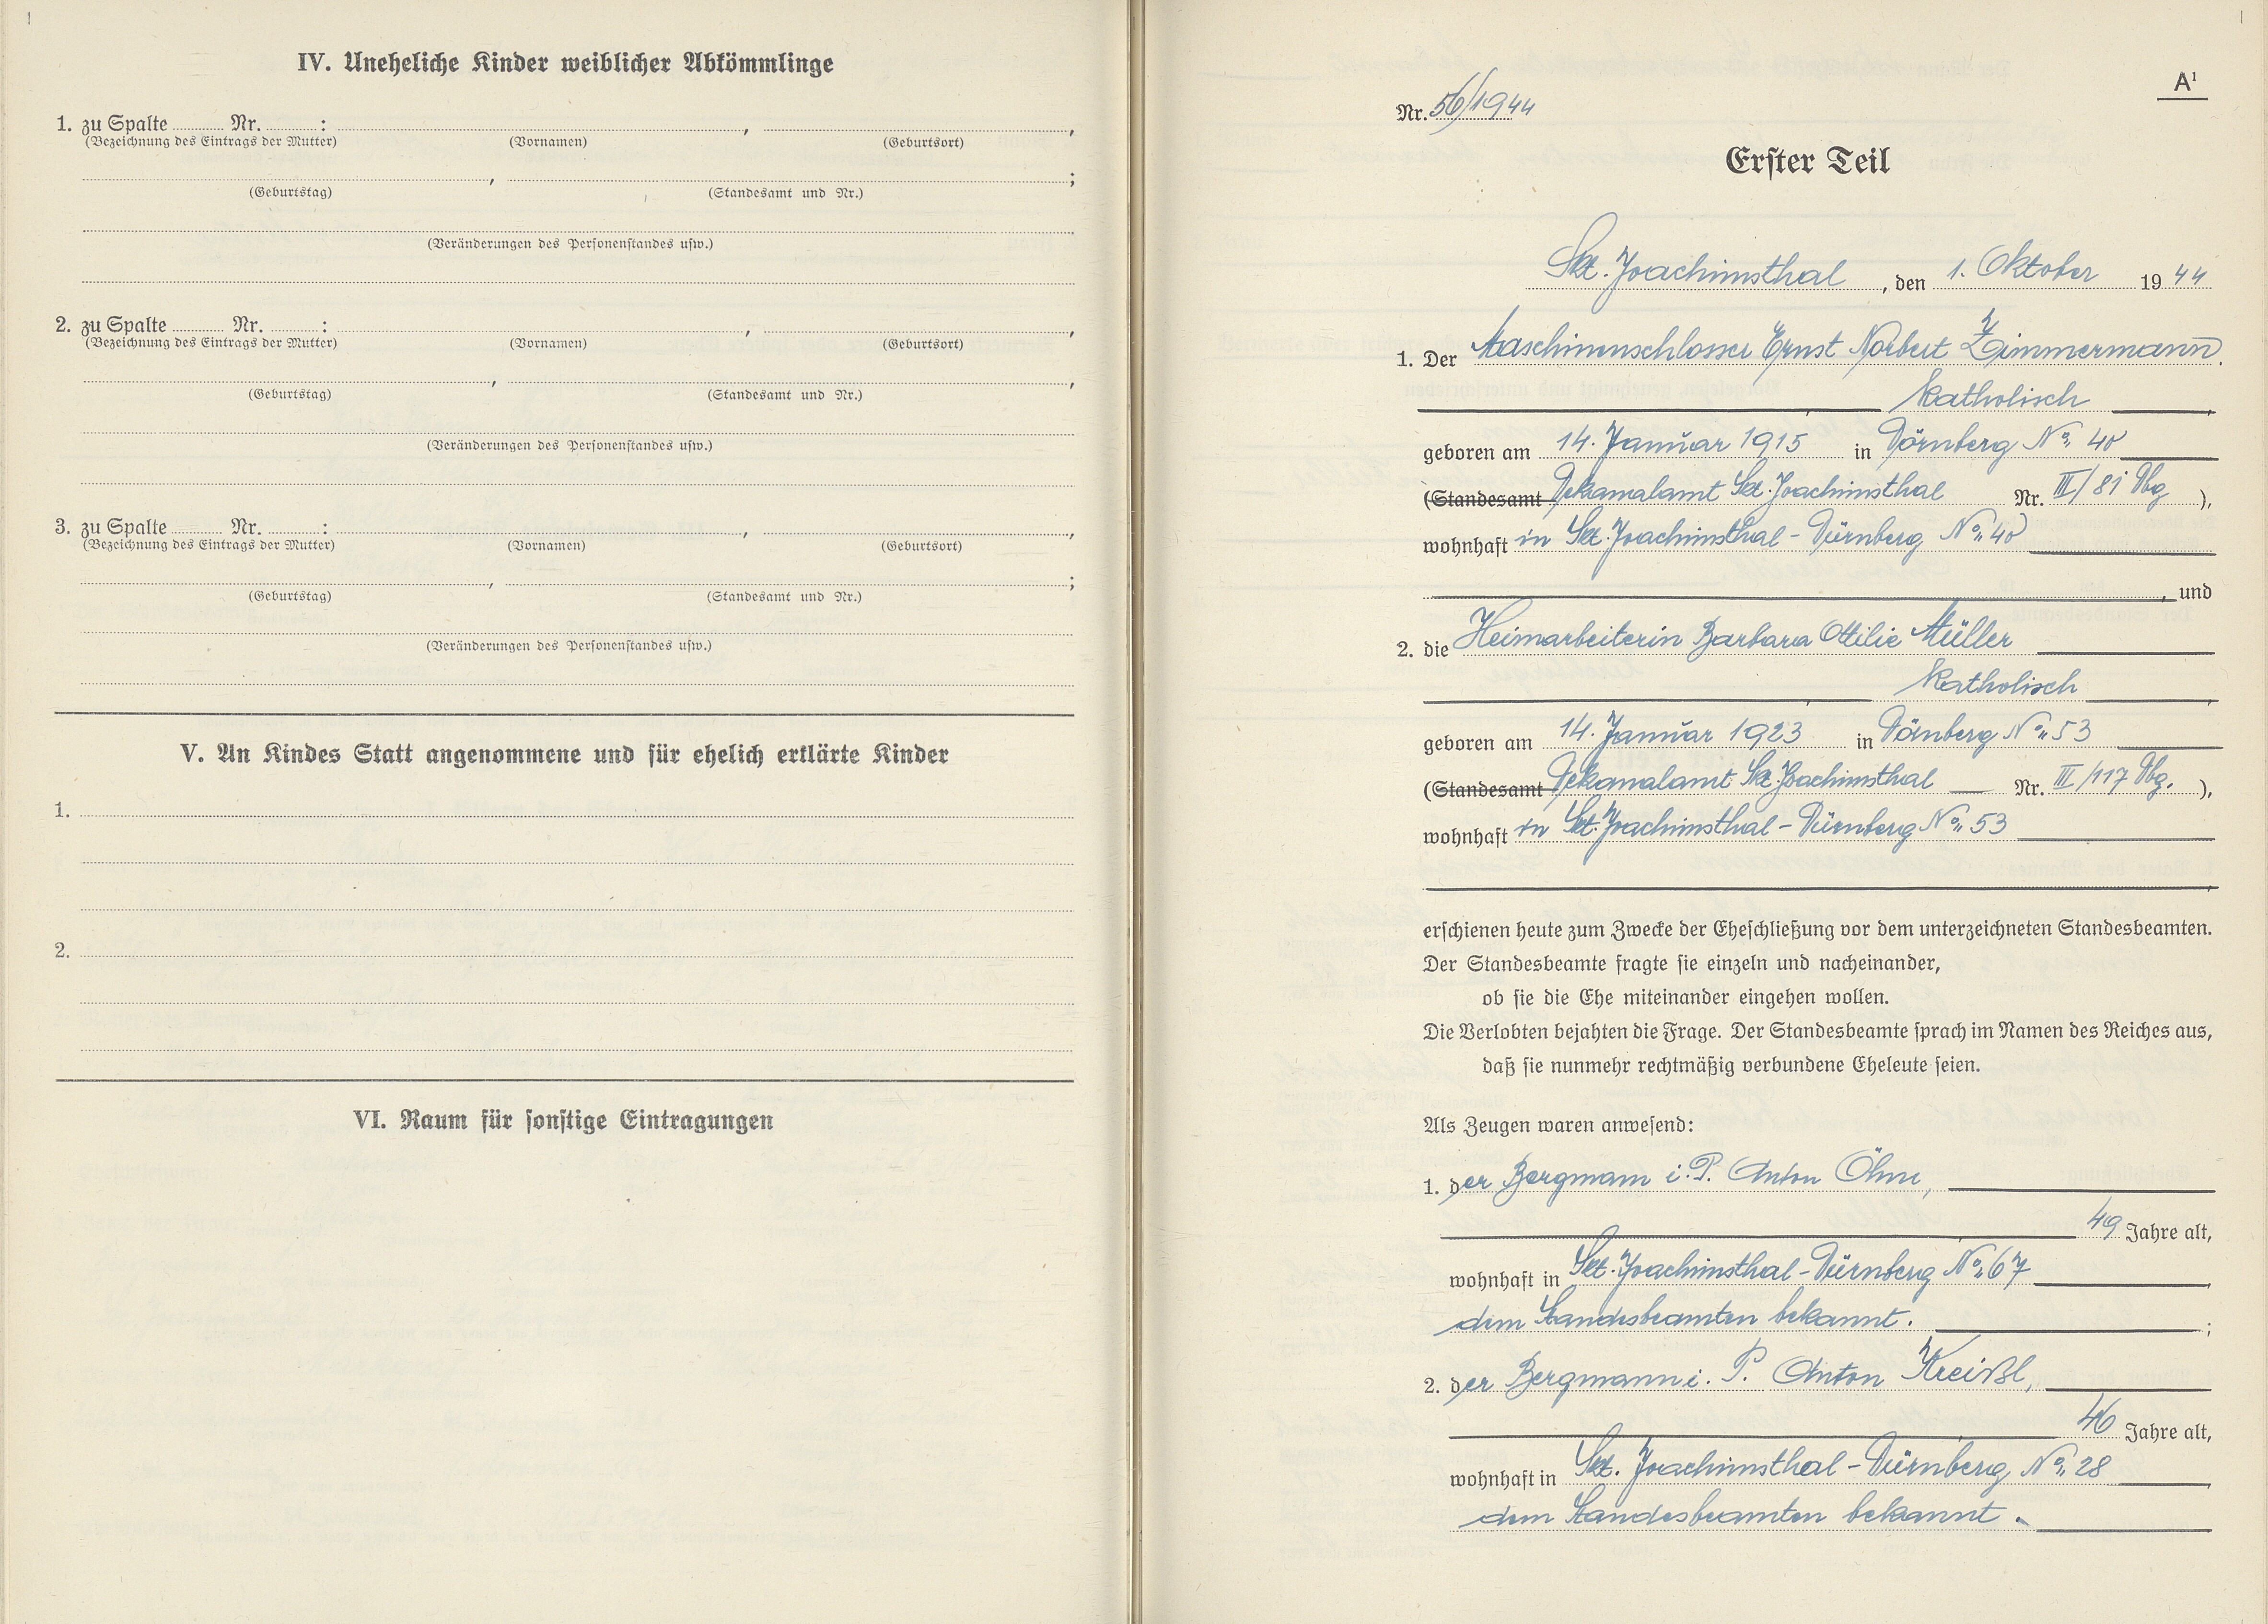 IV. Uneheliche Kinder weiblicher Abkömmlinge
1. zu Spalte ........ Nr. ........ : ........ , ........ ,
(Bezeichnung des Eintrags der Mutter) (Vornamen) (Geburtsort)
........ , ........ ;
(Geburtstag) (Standesamt und Nr.)
(Veränderungen des Personenstandes usw.)
2. zu Spalte ........ Nr. ........ : ........ , ........ ,
(Bezeichnung des Eintrags der Mutter) (Vornamen) (Geburtsort)
........ , ........ ,
(Geburtstag) (Standesamt und Nr.)
(Veränderungen des Personenstandes usw.)
3. zu Spalte ........ Nr. ........ : ........ , ........ ,
(Bezeichnung des Eintrags der Mutter) (Vornamen) (Geburtsort)
........ , ........ ;
(Geburtstag) (Standesamt und Nr.)
(Veränderungen des Personenstandes usw.)
V. An Kindes Statt angenommene und für ehelich erklärte Kinder
1.
2.
VI. Raum für sonstige Eintragungen
A¹
Nr. 56/1944
Erster Teil
Skt. Joachimsthal, den 1. Oktober 1944
1. Der Maschinenschlosser Ernst Norbert Zimmermann,
katholisch,
geboren am 14. Januar 1915 in Dörnberg No. 40
(Standesamt Dekanalamt Skt. Joachimsthal Nr. III/81 Dbg),
wohnhaft in Skt. Joachimsthal - Dürnberg No. 40
, und
2. die Heimarbeiterin Barbara Ottilie Müller
katholisch,
geboren am 14. Januar 1923 in Dörnberg No. 53
(Standesamt Dekanalamt Skt. Joachimsthal Nr. III/117 Dbg.),
wohnhaft in Skt. Joachimsthal - Dürnberg No. 53
,
erschienen heute zum Zwecke der Eheschließung vor dem unterzeichneten Standesbeamten.
Der Standesbeamte fragte sie einzeln und nacheinander,
ob sie die Ehe miteinander eingehen wollen.
Die Verlobten bejahten die Frage. Der Standesbeamte sprach im Namen des Reiches aus,
daß sie nunmehr rechtmäßig verbundene Eheleute seien.
Als Zeugen waren anwesend:
1. der Bergmann i. P. Anton Öhm,
49 Jahre alt,
wohnhaft in Skt. Joachimsthal - Dürnberg No. 67,
dem Standesbeamten bekannt. ;
2. der Bergmann i. P. Anton Kreißl,
46 Jahre alt,
wohnhaft in Skt. Joachimsthal - Dürnberg No. 28
dem Standesbeamten bekannt.